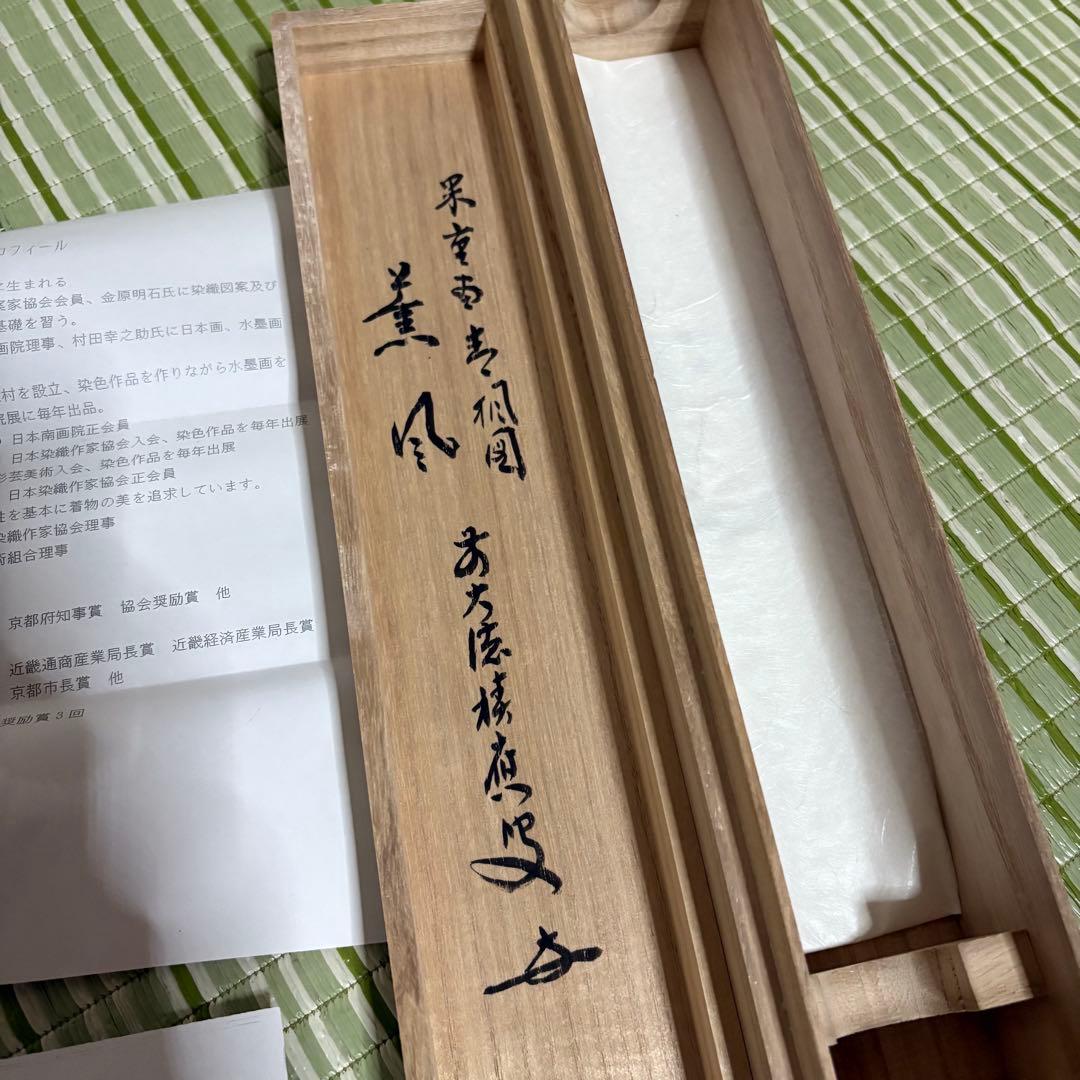 ロフィール
生まれる
家協会会員、金原明石氏に染織図案及び
基礎を習う。
画院理事、村田幸之助氏に日本画、水墨画
村を設立、染色作品を作りながら水墨画を
院展に毎年出品。
日本南画院正会員
日本染織作家協会入会、染色作品を毎年出展
芸美術入会、染色作品を毎年出展
日本染織作家協会正会員
性を基本に着物の美を追求しています。
染織作家協会理事
術組合理事
京都府知事賞 協会奨励賞 他
近畿通商産業局長賞 近畿経済産業局長賞
京都市長賞 他
奨励賞3回
画青楓図
薫風
前大徳